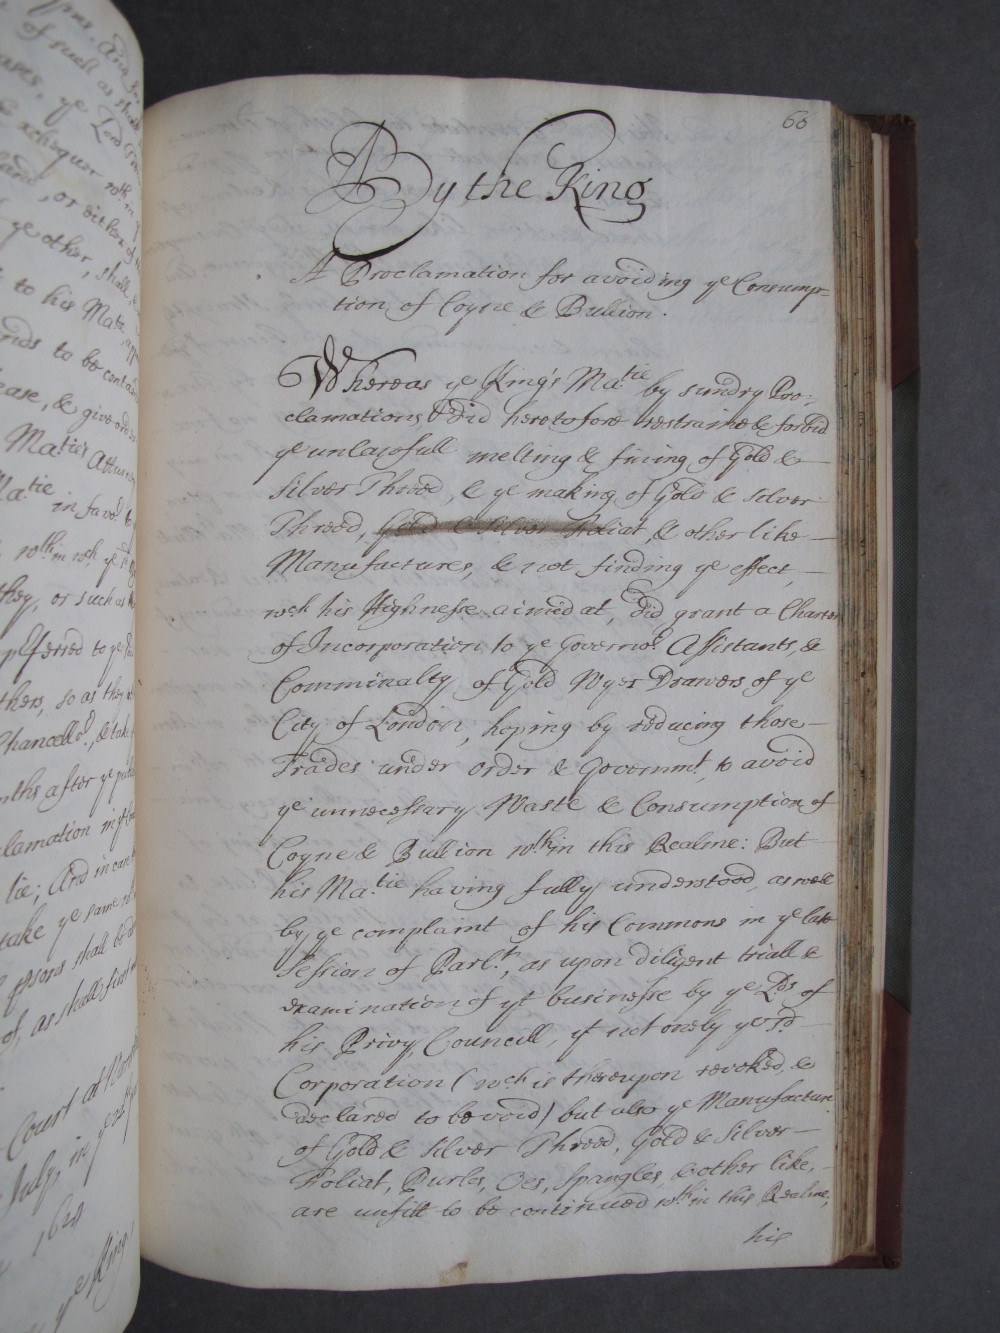 pms, And
of such as shall
ases, ye Lord
Exchequer wth in
land, or either of
ye other, shall
to his Matie
nds to be contain
ease, & give order
Maties Attur
Matie in favor
wth in wch ye sd
they, or such as
pferred to ye
thers, so as they
Chancellor, & take
nths after ye
clamation in yt
tie; And in case
take ye same
psons shall be
of, as shall first
Court at
July, in ye
1628
ye King
66
By the King
A Proclamation for avoiding ye Consump=
tion of Coyne & Bullion.
Whereas ye King's Matie by sundry Pro=
clamations did heretofore restraine & forbid
ye unlawfull melting & fining of Gold &
Silver Threed, & ye making of Gold & Silver
Threed, Gold & Silver Foliat, & other like
Manufactures, & not finding ye effect,
wch his Highnesse aimed at, did grant a Charter
of Incorporation to ye Governor Assistants, &
Comminalty of Gold Wyer Drawers of ye
City of London, hoping by reducing those
Trades under order & Governmt, to avoid
ye unnecessary Waste & Consumption of
Coyne & Bullion wth in this Realme: But
his Matie having fully understood, as well
by ye complaint of his Commons in ye late
Session of Parlt, as upon diligent triall &
examination of yt businesse by ye Lds of
his Privy Councill, yt not onely ye sd
Corporation (wch is thereupon revoked, &
declared to be void) but also ye Manufacture
of Gold & Silver Threed, Gold & Silver
Foliat, Purles, Oes, Spangles, & other like,
are unfitt to be continued wth in this Realme,
his